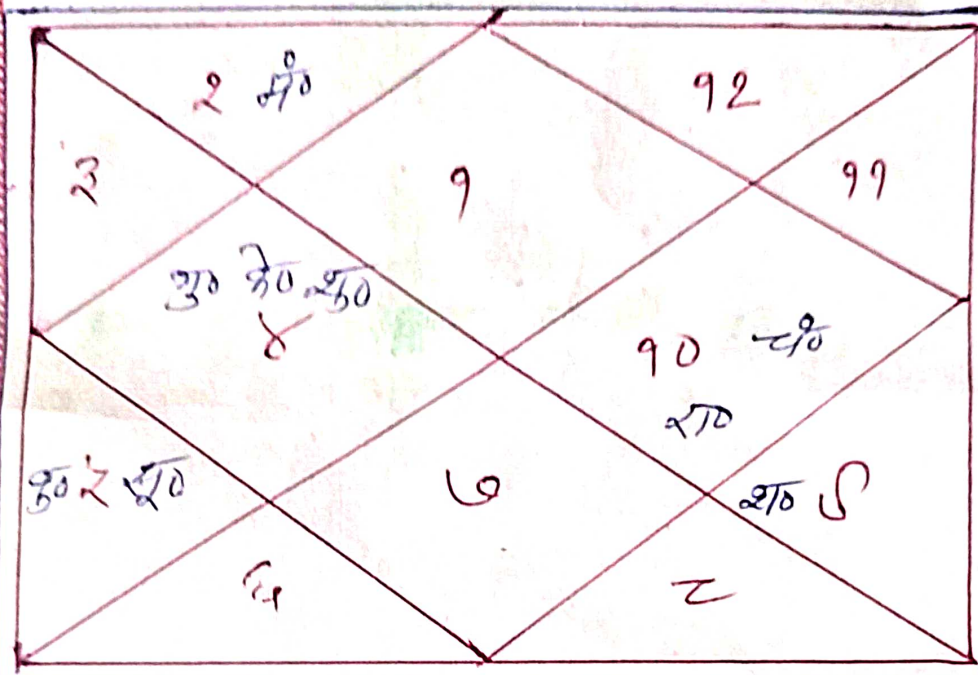 २ मं० १२
३ १ ११
गु० के० शु०
४
१० चं०
रा०
बु० ५ सू० ७ श० ९
६ ८